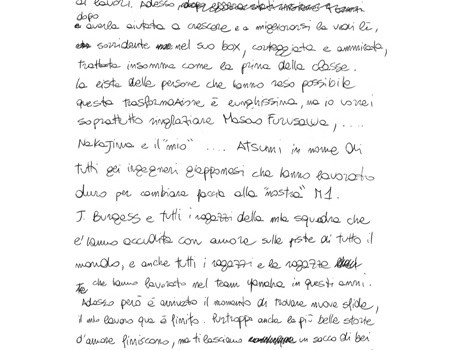 ai lavori. Adesso,
dopo
averla aiutata a crescere e a migliorarsi la vedi lì,
sorridente nel suo box, corteggiata e ammirata,
trattata insomma come la prima della classe.
La lista delle persone che hanno reso possibile
questa trasformazione è lunghissima, ma io vorrei
soprattutto ringraziare Masao Furusawa, ....
Nakajima e il "mio" .... Atsumi in nome di
tutti gli ingegneri giapponesi che hanno lavorato
duro per cambiare faccia alla "nostra" M1.
J. Burgess e tutti i ragazzi della mia squadra che
l'hanno accudita con amore sulle piste di tutto il
mondo, e anche tutti i ragazzi e le ragazze
che hanno lavorato nel team Yamaha in questi anni.
Adesso però è arrivato il momento di trovare nuove sfide,
il mio lavoro qua è finito. Purtroppo anche le più belle storie
d'amore finiscono, ma ti lasciano un sacco di bei